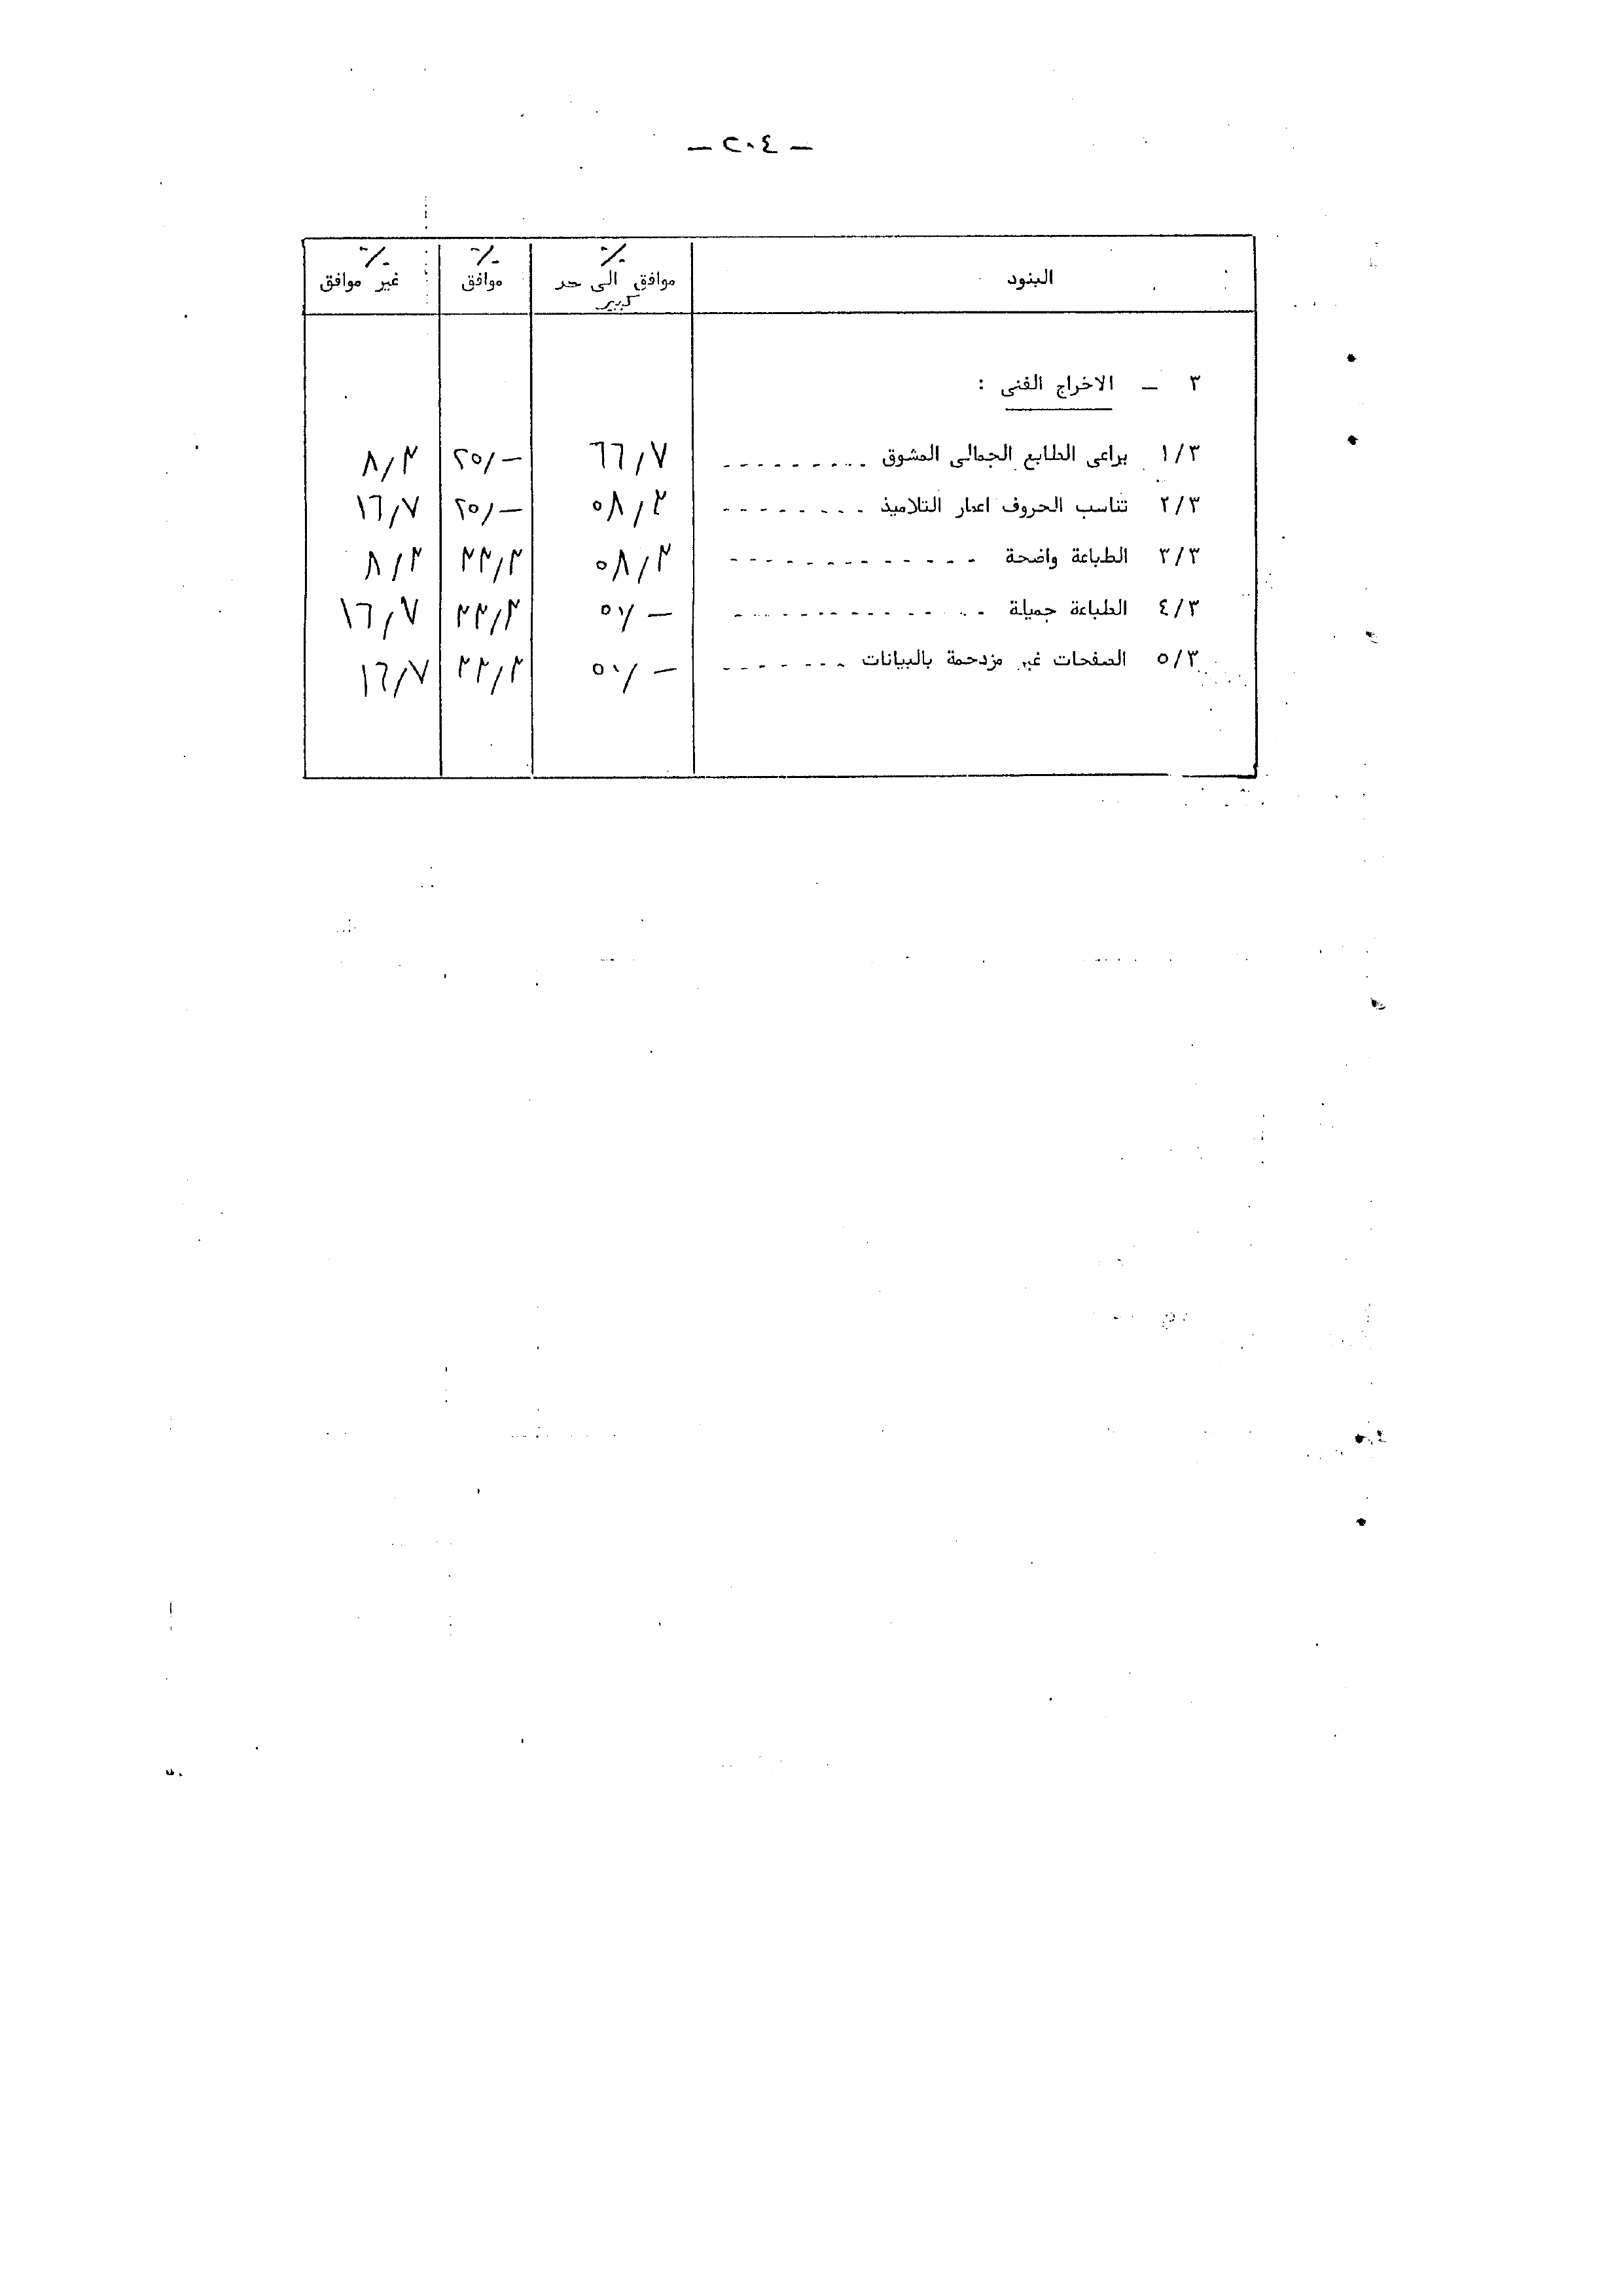 — ٢٠٤ —
البنود ٪ موافق الى حد كبير ٪ موافق ٪ غير موافق
٣ — الاخراج الفنى :
١/٣ يراعى الطابع الجمالى المشوق --------- ٦٦/٧ ٢٥/— ٨/٣
٢/٣ تناسب الحروف اعمار التلاميذ -------- ٥٨/٣ ٢٥/— ١٦/٧
٣/٣ الطباعة واضحة ------------- ٥٨/٣ ٣٣/٣ ٨/٣
٤/٣ الطباعة جميلة ------------- ٥٠/— ٣٣/٣ ١٦/٧
٥/٣ الصفحات غير مزدحمة بالبيانات ------- ٥٠/— ٣٣/٣ ١٦/٧